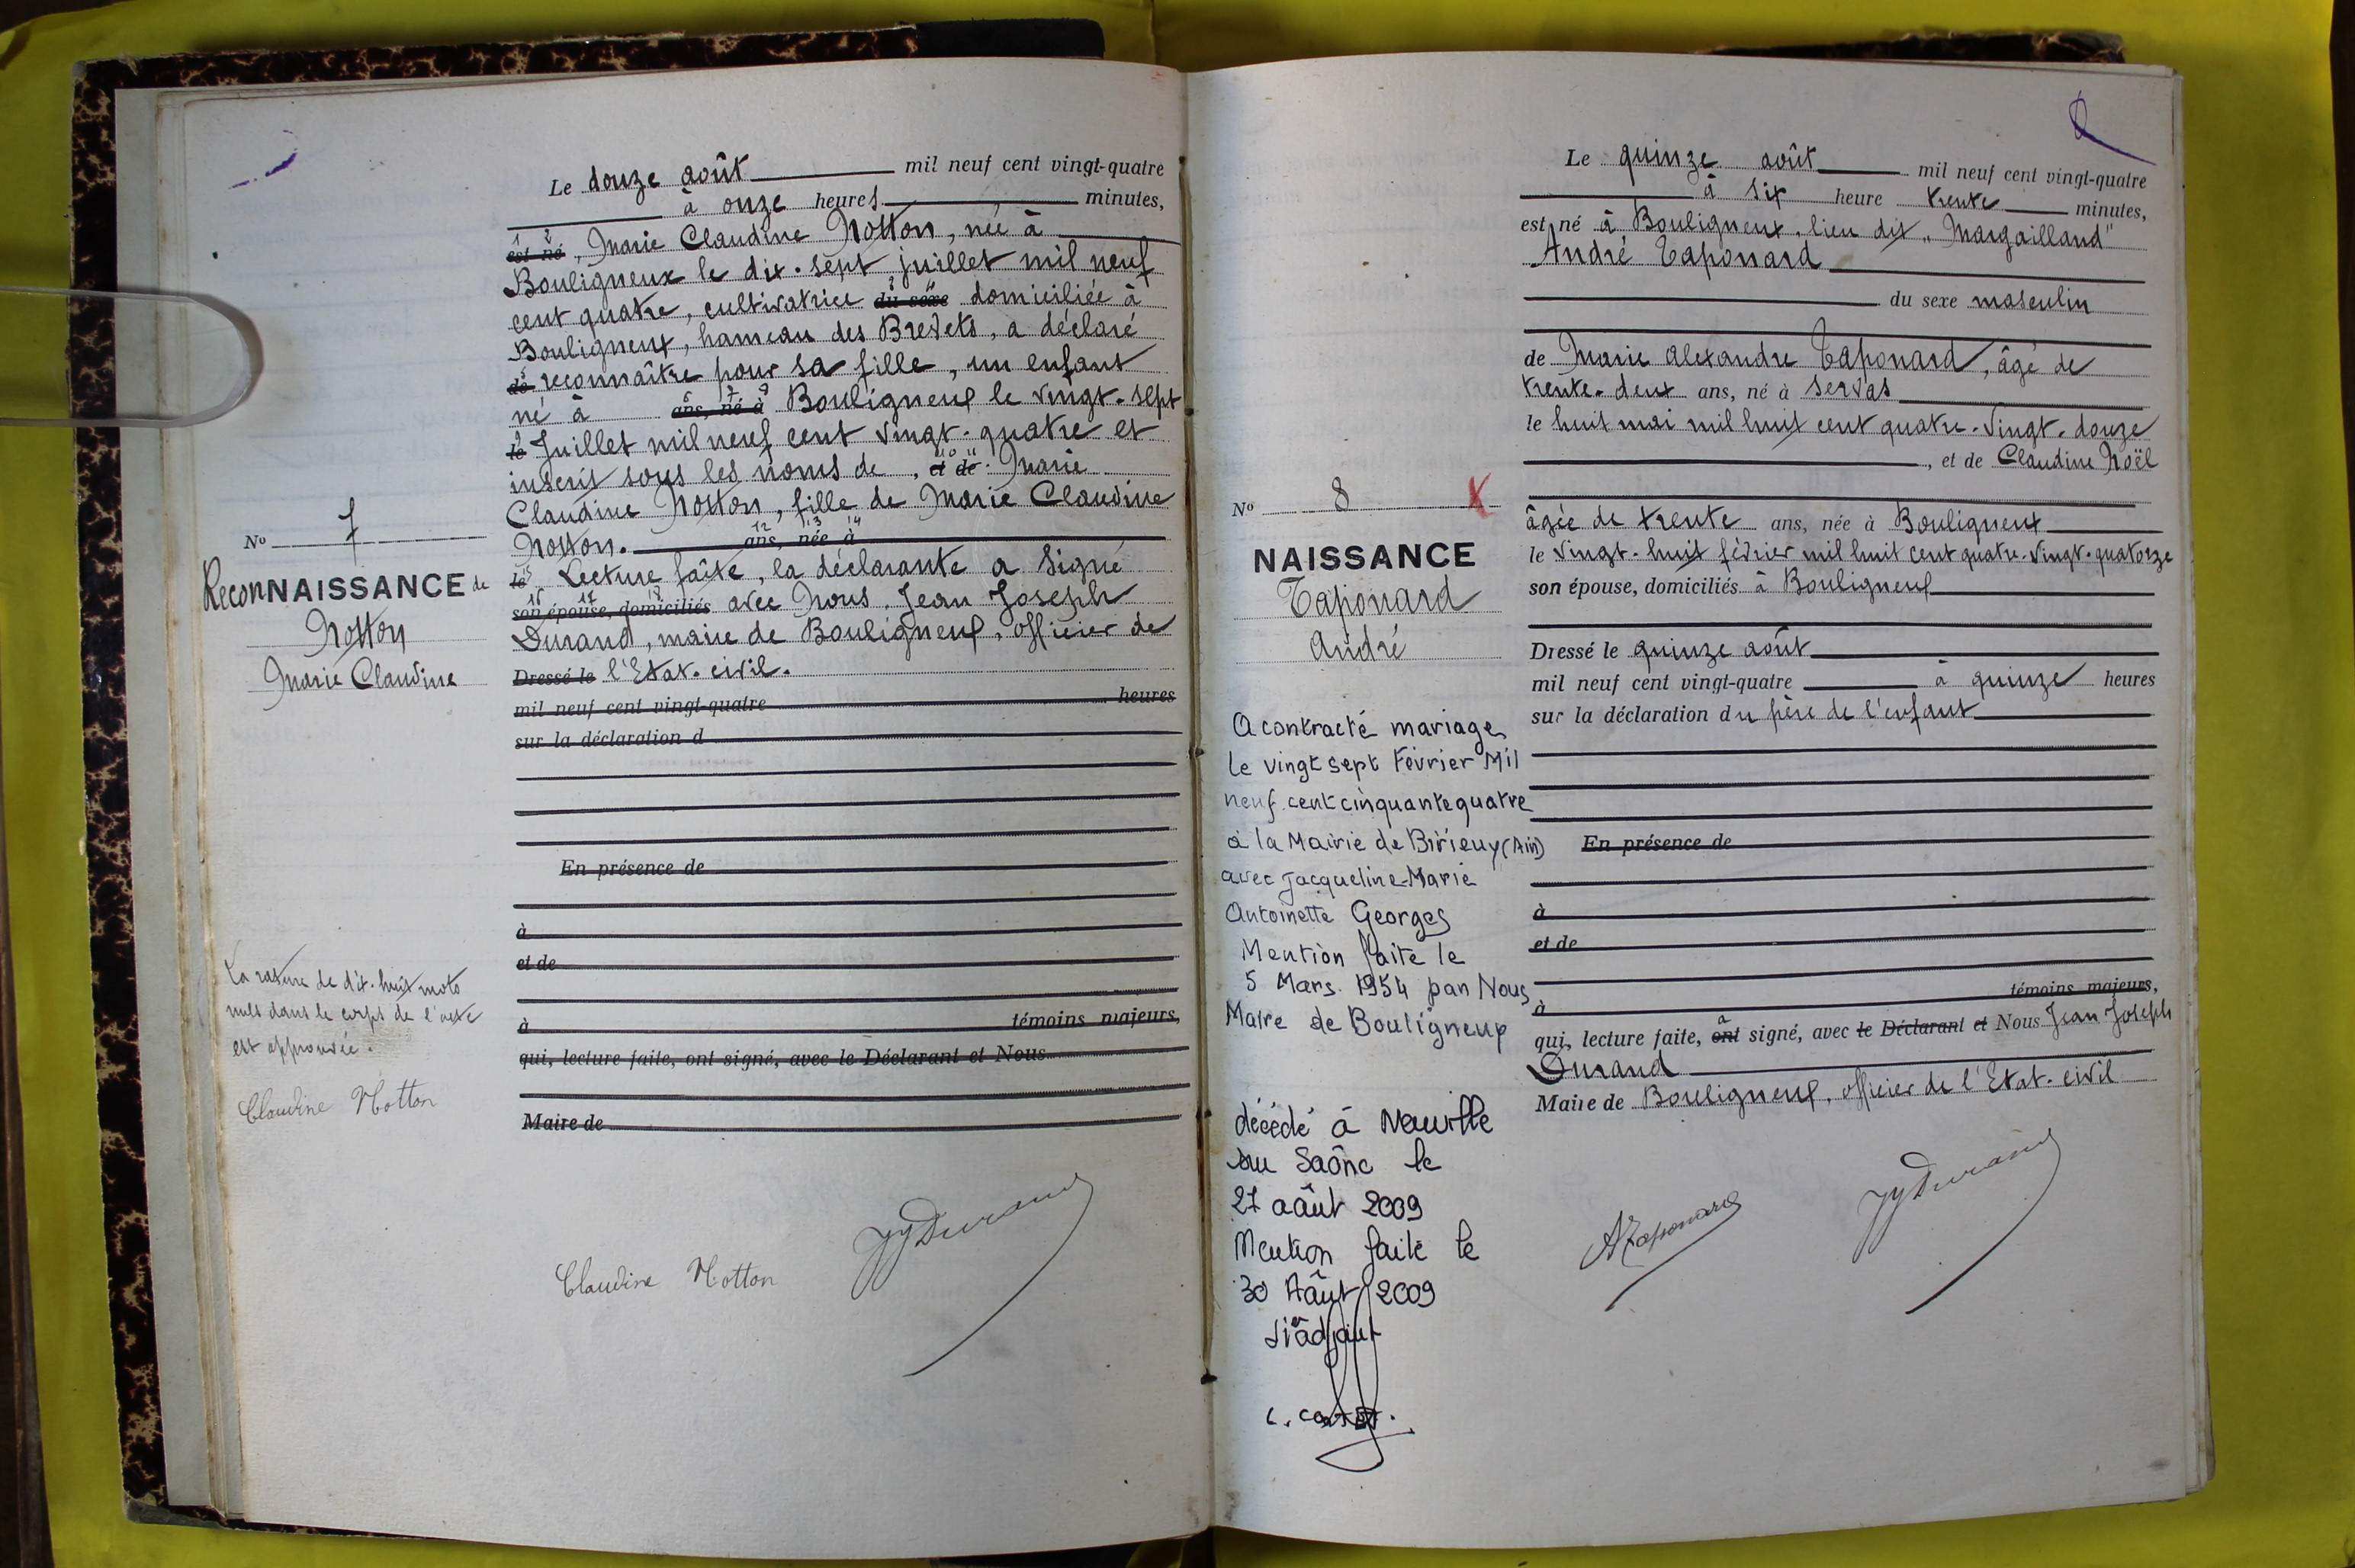 Le douze août mil neuf cent vingt-quatre
à onze heures minutes,
1 2
est né, Marie Claudine Notton, née à
Bouligneux le dix-sept juillet mil neuf
3 4
cent quatre, cultivatrice du sexe domiciliée à
Bouligneux, hameau des Brevets, a déclaré
5
de reconnaître pour sa fille, un enfant
6 7 8
né à ans, né à Bouligneux le vingt-sept
9
le Juillet mil neuf cent vingt-quatre et
10 11
inscrit sous les noms de, et de Marie
Claudine Notton, fille de Marie Claudine
12 13 14
Notton. ans, née à
15
le Lecture faite, la déclarante a signé
16 17 18
son épouse, domiciliés avec Nous, Jean Joseph
Durand, maire de Bouligneux, officier de
Dressé le l'Etat-civil.
mil neuf cent vingt-quatre heures
sur la déclaration d
En présence de
à
et de
à témoins majeurs,
qui, lecture faite, ont signé, avec le Déclarant et Nous
Maire de
Claudine Notton
JJ Durand
No 7
ReconNAISSANCE de
Notton
Marie Claudine
La rature de dix-huit mots
nuls dans le corps de l'acte
est approuvée.
Claudine Notton
Le quinze août mil neuf cent vingt-quatre
à six heure trente minutes,
est né à Bouligneux, lieu dit "Margailland"
André Taponard
du sexe masculin
de Marie Alexandre Taponard, âgé de
trente-deux ans, né à Servas
le huit mai mil huit cent quatre-vingt-douze
, et de Claudine Noël
âgée de trente ans, née à Bouligneux
le vingt-huit février mil huit cent quatre-vingt-quatorze
son épouse, domiciliés à Bouligneux
Dressé le quinze août
mil neuf cent vingt-quatre à quinze heures
sur la déclaration du père de l'enfant
En présence de
à
et de
à témoins majeurs,
a
qui, lecture faite, ont signé, avec le Déclarant et Nous Jean Joseph
Durand
Maire de Bouligneux, officier de l'Etat-civil
A Taponard
JJ Durand
No 8 X
NAISSANCE
Taponard
André
A contracté mariage
le vingt sept Février Mil
neuf cent cinquante quatre
à la Mairie de Birieux (Ain)
avec Jacqueline-Marie
Antoinette Georges
Mention faite le
5 Mars 1954 par Nous
Maire de Bouligneux
décédé à Neuville
sur Saône le
27 août 2009
Mention faite le
30 Août 2009